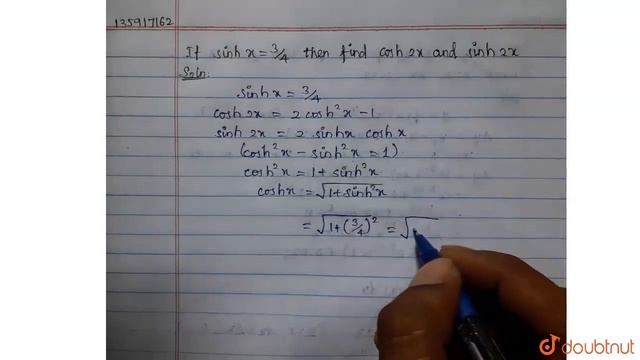 135917162
If sinh x = 3/4 then find cosh 2x and sinh 2x
Soln:
sinh x = 3/4
cosh 2x = 2 cosh²x - 1
sinh 2x = 2 sinhx coshx
(cosh²x - sinh²x = 1)
cosh²x = 1 + sinh²x
coshx = √1+sinh²x
= √1+(3/4)² = √
doubtnut